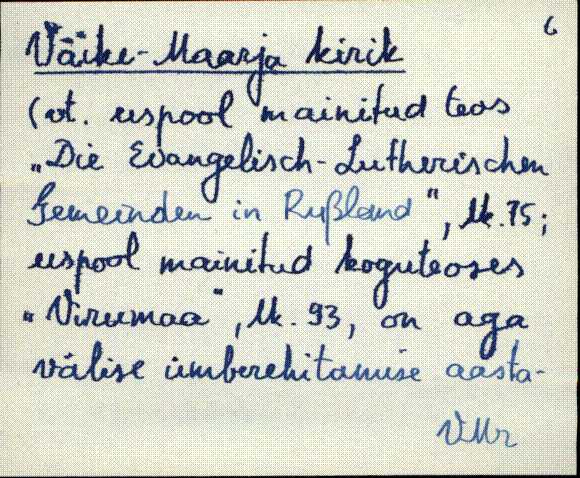 6
Väike-Maarja kirik
(vt. uspool mainitud teos
„Die Evangelisch-Lutherischen
Gemeinden in Rußland", lk. 75;
uspool mainitud koguteoses
„Virumaa", lk. 93, on aga
välise ümberehitamise aasta-